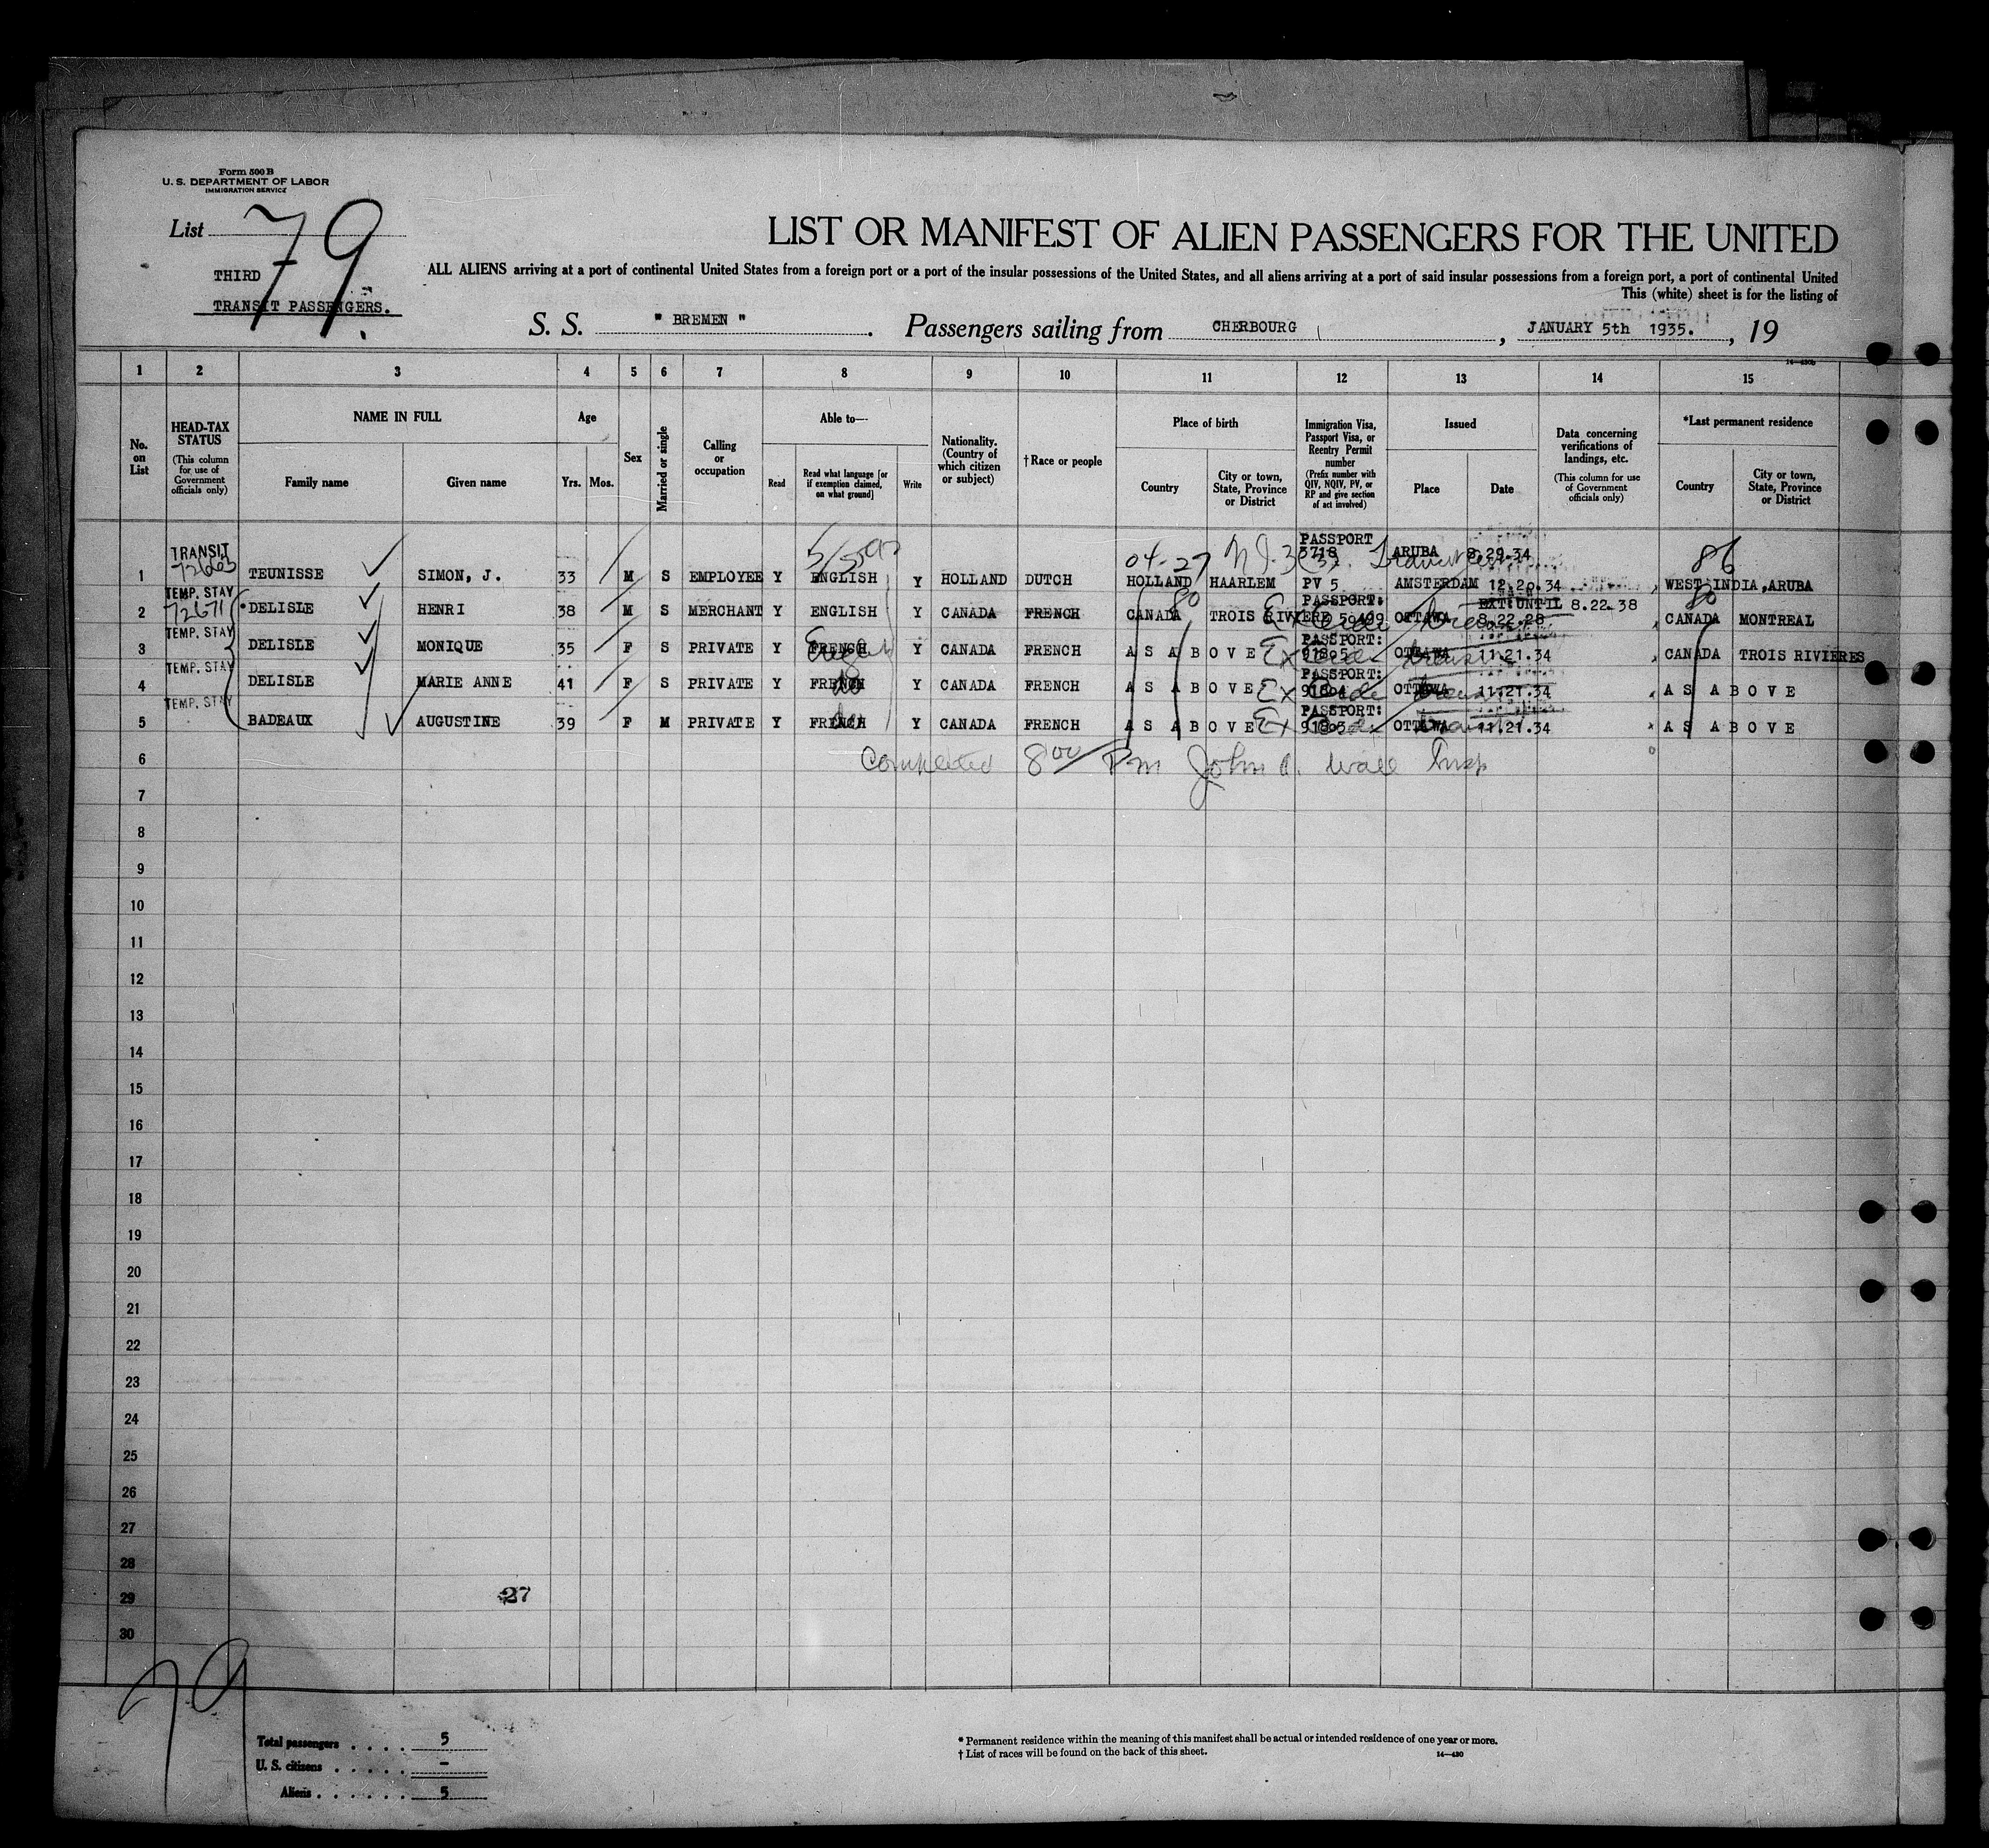 Form 500 B
U. S. DEPARTMENT OF LABOR
IMMIGRATION SERVICE
List 79
THIRD
TRANSIT PASSENGERS.
LIST OR MANIFEST OF ALIEN PASSENGERS FOR THE UNITED
ALL ALIENS arriving at a port of continental United States from a foreign port or a port of the insular possessions of the United States, and all aliens arriving at a port of said insular possessions from a foreign port, a port of continental United
This (white) sheet is for the listing of
S. S. " BREMEN ". Passengers sailing from CHERBOURG, JANUARY 5th 1935., 19
14—430b
1 2 3 4 5 6 7 8 9 10 11 12 13 14 15
No. on List
HEAD-TAX STATUS (This column for use of Government officials only)
NAME IN FULL Family name Given name
Age Yrs. Mos.
Sex
Married or single
Calling or occupation
Able to— Read Read what language [or if exemption claimed, on what ground] Write
Nationality. (Country of which citizen or subject)
†Race or people
Place of birth Country City or town, State, Province or District
Immigration Visa, Passport Visa, or Reentry Permit number (Prefix number with QIV, NQIV, PV, or RP and give section of act involved)
Issued Place Date
Data concerning verifications of landings, etc. (This column for use of Government officials only)
*Last permanent residence Country City or town, State, Province or District
TRANSIT 04-27 PASSPORT 3718 ARUBA 8.29.34 86
1 TEUNISSE SIMON, J. 33 M S EMPLOYEE Y ENGLISH Y HOLLAND DUTCH HOLLAND HAARLEM PV 5 AMSTERDAM 12.20.34 WEST INDIA, ARUBA
TEMP. STAY 80 PASSPORT: EXT: UNTIL 8.22.38 80
2 72671 DELISLE HENRI 38 M S MERCHANT Y ENGLISH Y CANADA FRENCH CANADA TROIS RIVIERE 50499 OTTAWA 8.22.28 CANADA MONTREAL
TEMP. STAY PASSPORT:
3 DELISLE MONIQUE 35 F S PRIVATE Y FRENCH Y CANADA FRENCH AS ABOVE OTTAWA 11.21.34 CANADA TROIS RIVIERES
TEMP. STAY PASSPORT:
4 DELISLE MARIE ANNE 41 F S PRIVATE Y FRENCH Y CANADA FRENCH AS ABOVE OTTAWA 11.21.34 AS ABOVE
TEMP. STAY PASSPORT:
5 BADEAUX AUGUSTINE 39 F M PRIVATE Y FRENCH Y CANADA FRENCH AS ABOVE OTTAWA 11.21.34 AS ABOVE
6 Completed 8 00 Pm John A. Wall Insp
7
8
9
10
11
12
13
14
15
16
17
18
19
20
21
22
23
24
25
26
27
28
29 27
30
79
Total passengers . . . . 5
U. S. citizens . . . . . –
Aliens . . . . . . 5
* Permanent residence within the meaning of this manifest shall be actual or intended residence of one year or more.
† List of races will be found on the back of this sheet. 14—430